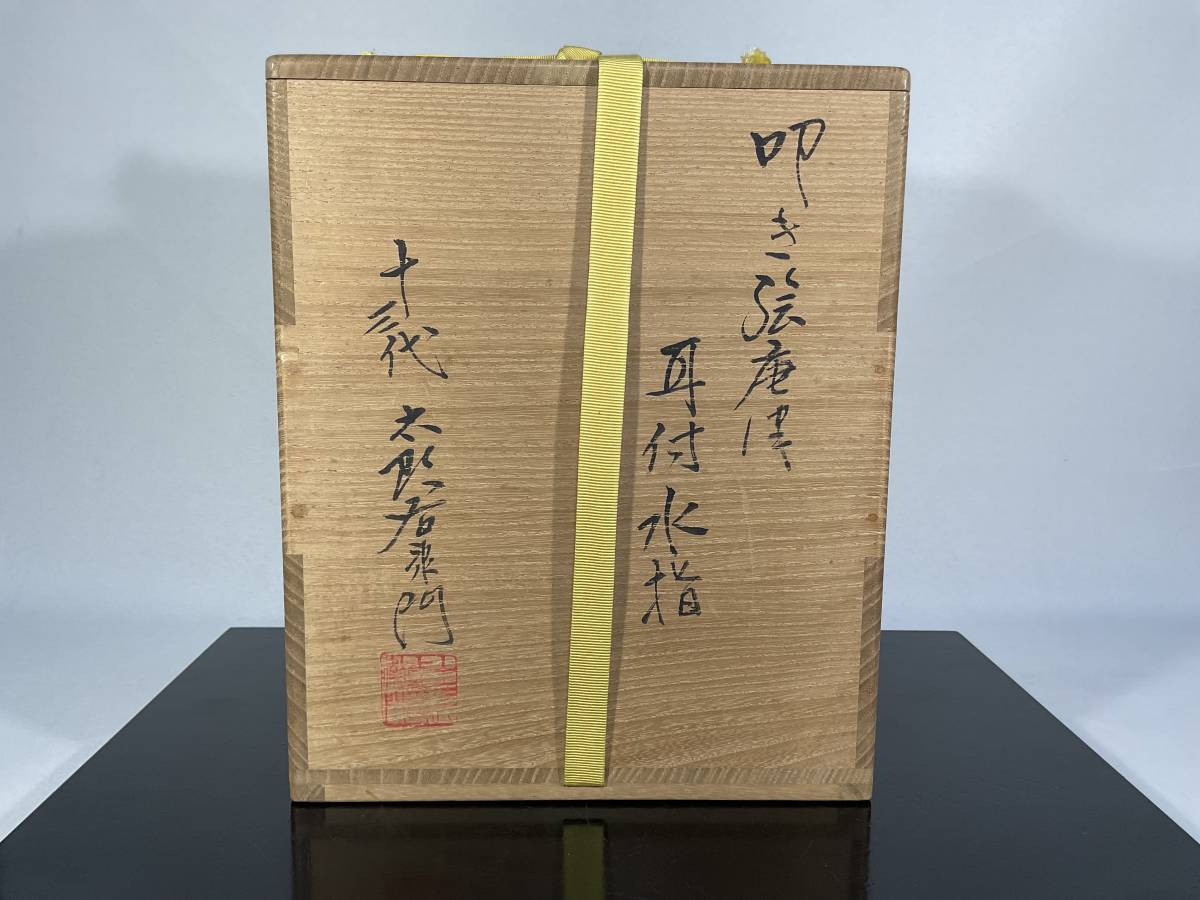 叩き絵唐津
耳付水指
十三代 太郎右衛門